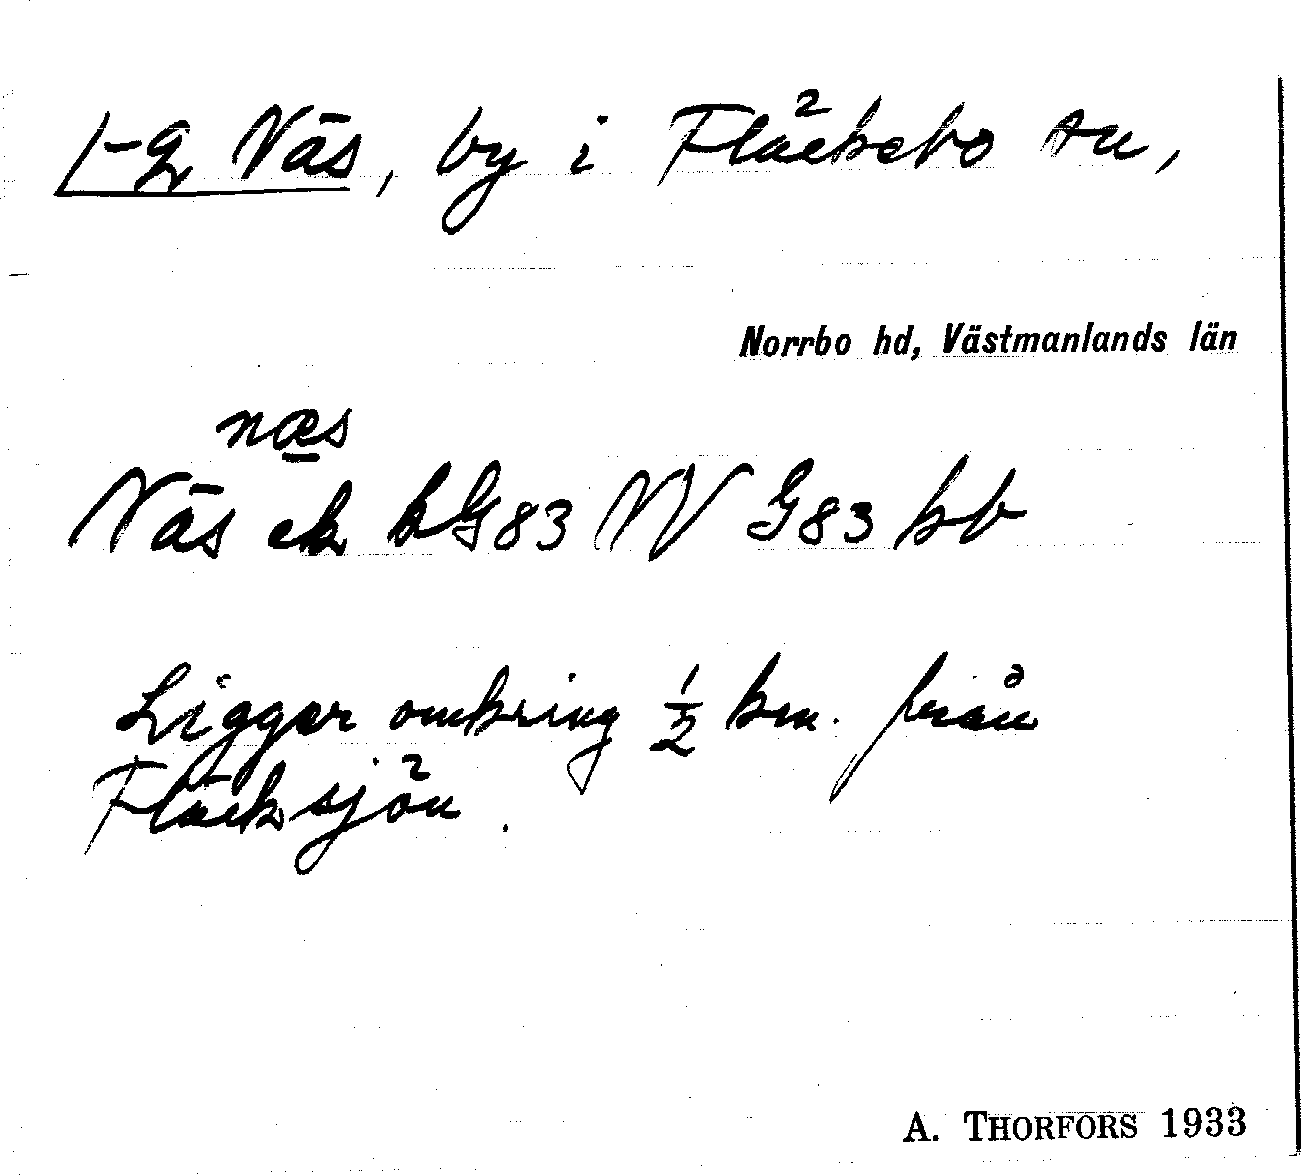 1-2 Näs, by i Fläckebo sn,
Norrbo hd, Västmanlands län
næs
Näs ek kG83 NV G83 hb
Ligger omkring ½ km. från
Fläcksjön.
A. THORFORS 1933